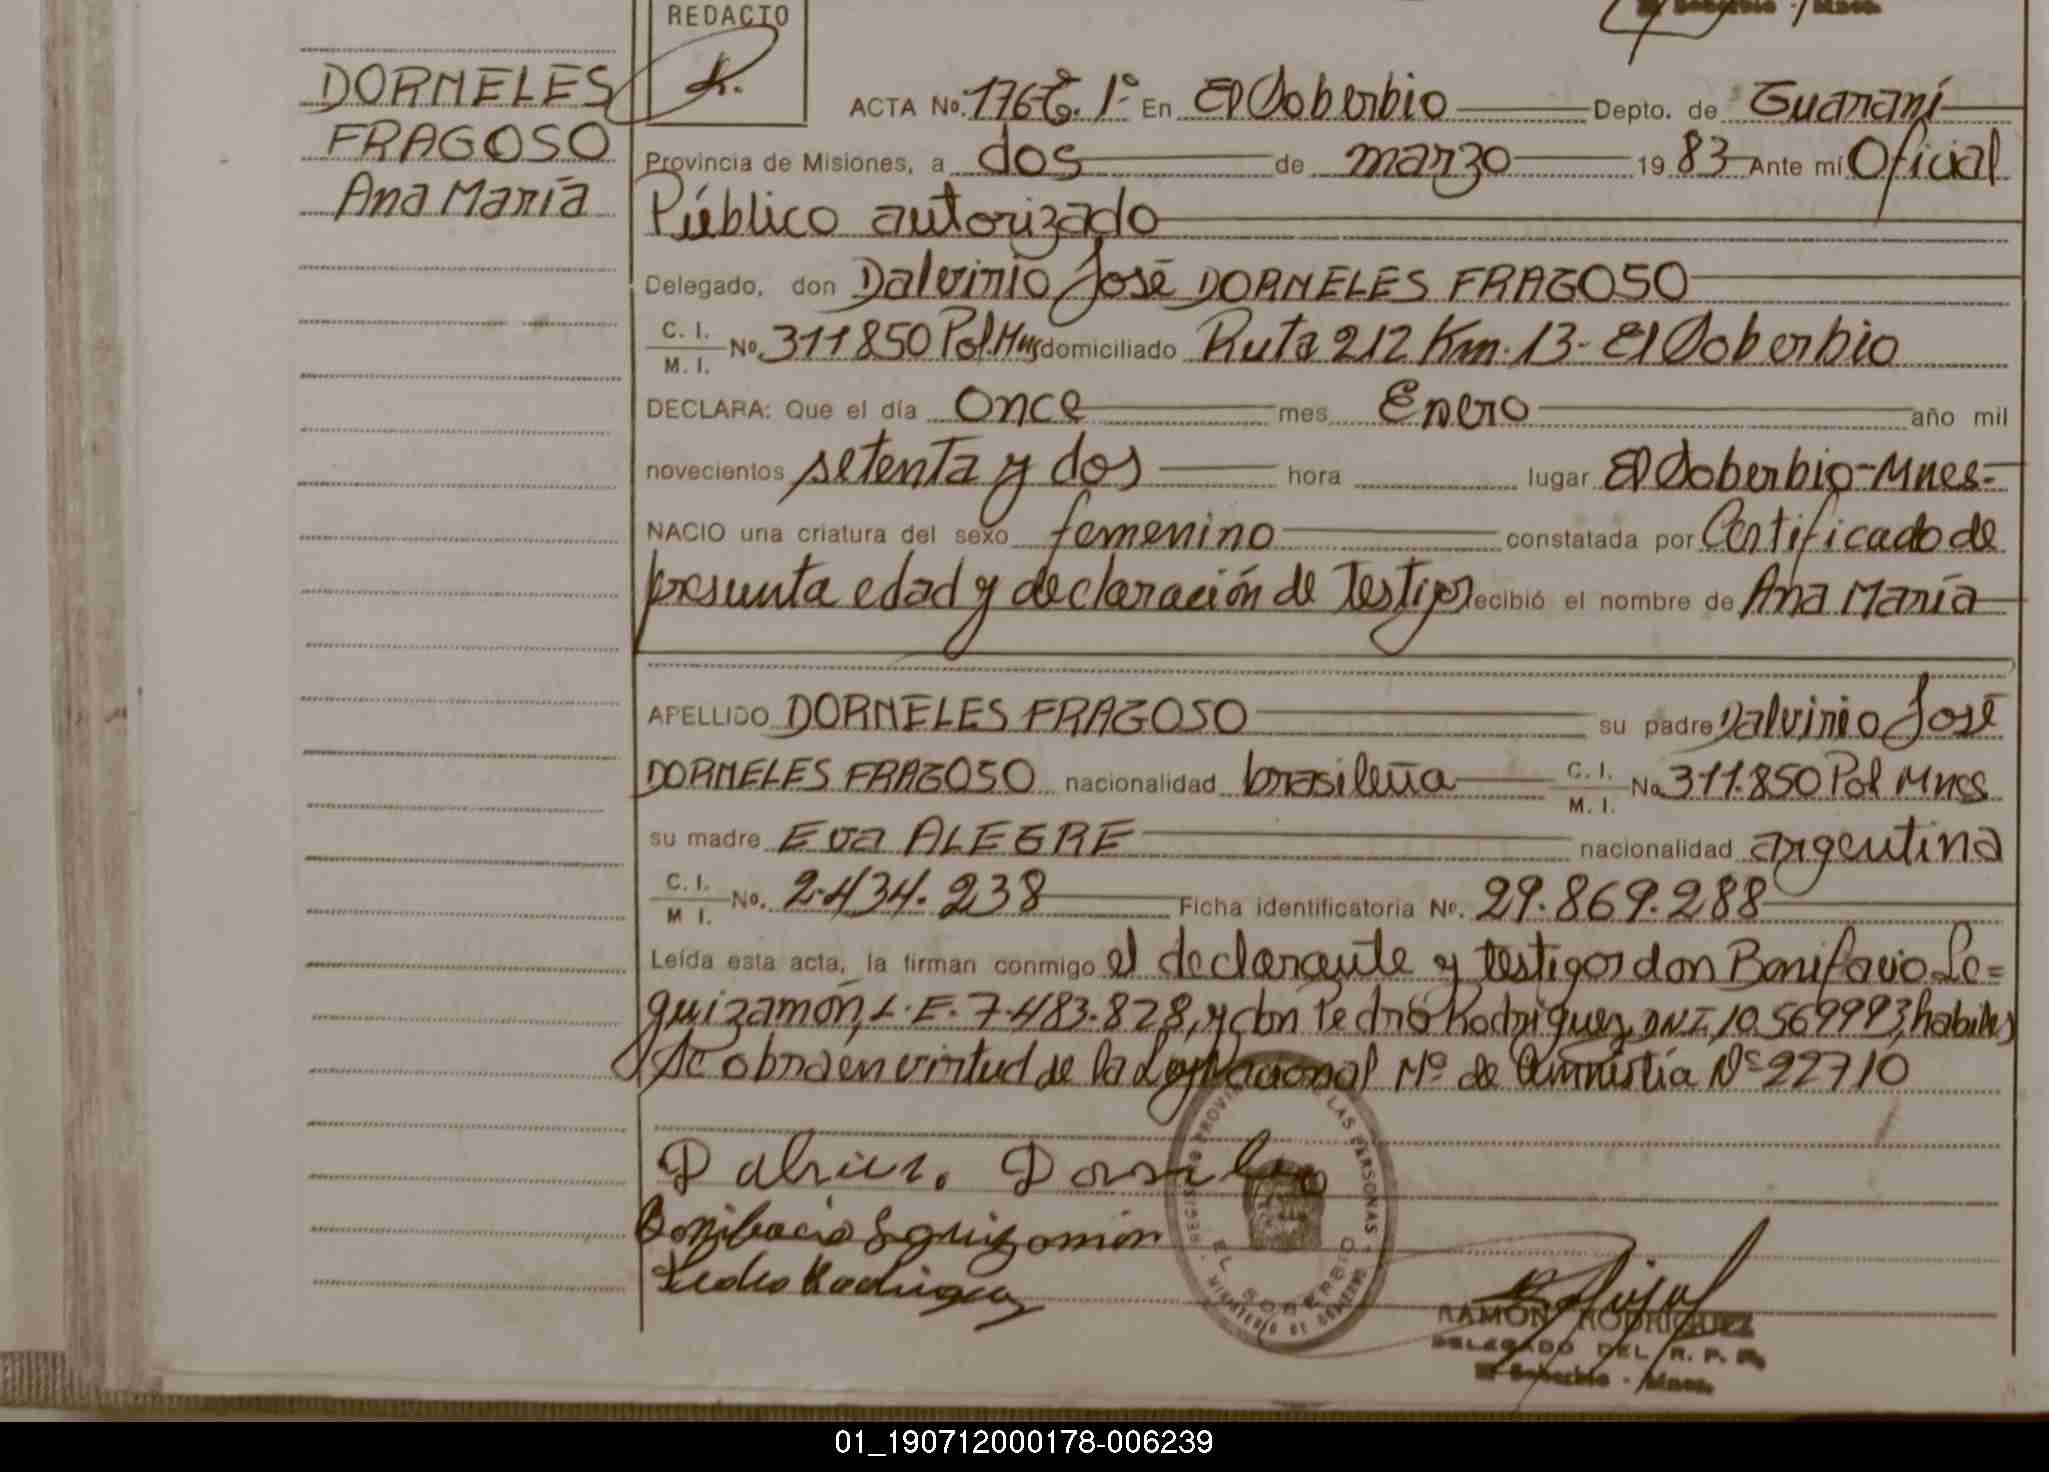 REDACTO
DORNELES
FRAGOSO
Ana María
ACTA No. 176 Tº. 1º En El Soberbio Depto. de Guaraní
Provincia de Misiones, a dos de marzo 19 83 Ante mí Oficial
Público autorizado
Delegado, don Dalvinio José DORNELES FRAGOSO
C. I. M. I. No. 311850 Pol. Mnes domiciliado Ruta 212 Km. 13 - El Soberbio
DECLARA: Que el día Once mes Enero año mil
novecientos setenta y dos hora lugar El Soberbio - Mnes -
NACIO una criatura del sexo femenino constatada por Certificado de
presunta edad y declaración de testigos recibió el nombre de Ana María
APELLIDO DORNELES FRAGOSO su padre Dalvinio José
DORNELES FRAGOSO nacionalidad brasileña C. I. M. I. No 311.850 Pol Mnes
su madre Eva ALEGRE nacionalidad argentina
C. I. M I. No. 2.434.238 Ficha identificatoria No. 29.869.288
Leída esta acta, la firman conmigo el declarante y testigos don Bonifacio Le=
guizamón, L.E. 7.483.828, y don Pedro Rodriguez, DNI, 10.569993, habiles
Se obra en virtud de la Ley Nacional Nº de Amnistía Nº 22710
REGISTRO PROVINCIAL DE LAS PERSONAS
EL SOBERBIO
MINISTERIO DE GOBIERNO
Bonifacio Leguizamón
Pedro Rodriguez
RAMÓN RODRIGUEZ
DELEGADO DEL R. P. P.
El Soberbio - Mnes.
01_190712000178-006239